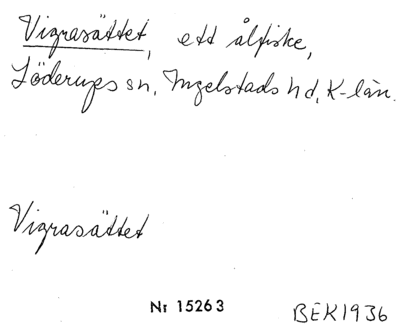 Vigrasättet, ett ålfiske,
Löderups sn, Ingelstads hd, K-län.
Vigrasättet
Nr 15263 BEK1936